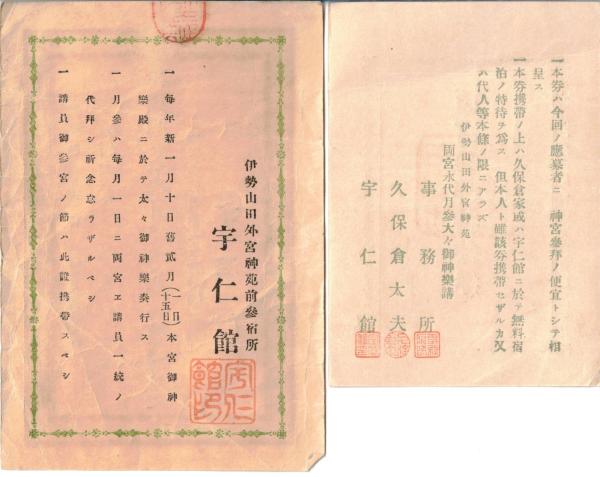 一本券ハ今回ノ應募者ニ 神宮參拜ノ便宜トシテ相
呈ス
一本券携帶ノ上ハ久保倉家或ハ宇仁館ニ於テ無料宿
泊ノ特待ヲ爲ス但本人ト雖該券携帶セザルカ又
ハ代人等本條ノ限ニアラズ
伊勢山田外宮神苑
両宮永代月參大々御神樂講
事務所
久保倉太夫
宇仁館
伊勢山田外宮神苑前參宿所
宇仁館
宇仁館印
一每年新一月十日舊貳月(一日十五日)本宮御神
樂殿ニ於テ太々御神樂奏行ス
一月參ハ每月一日ニ両宮ヱ講員一統ノ
代拜シ祈念怠ラザルベシ
一講員御參宮ノ節ハ此證携帶スベシ